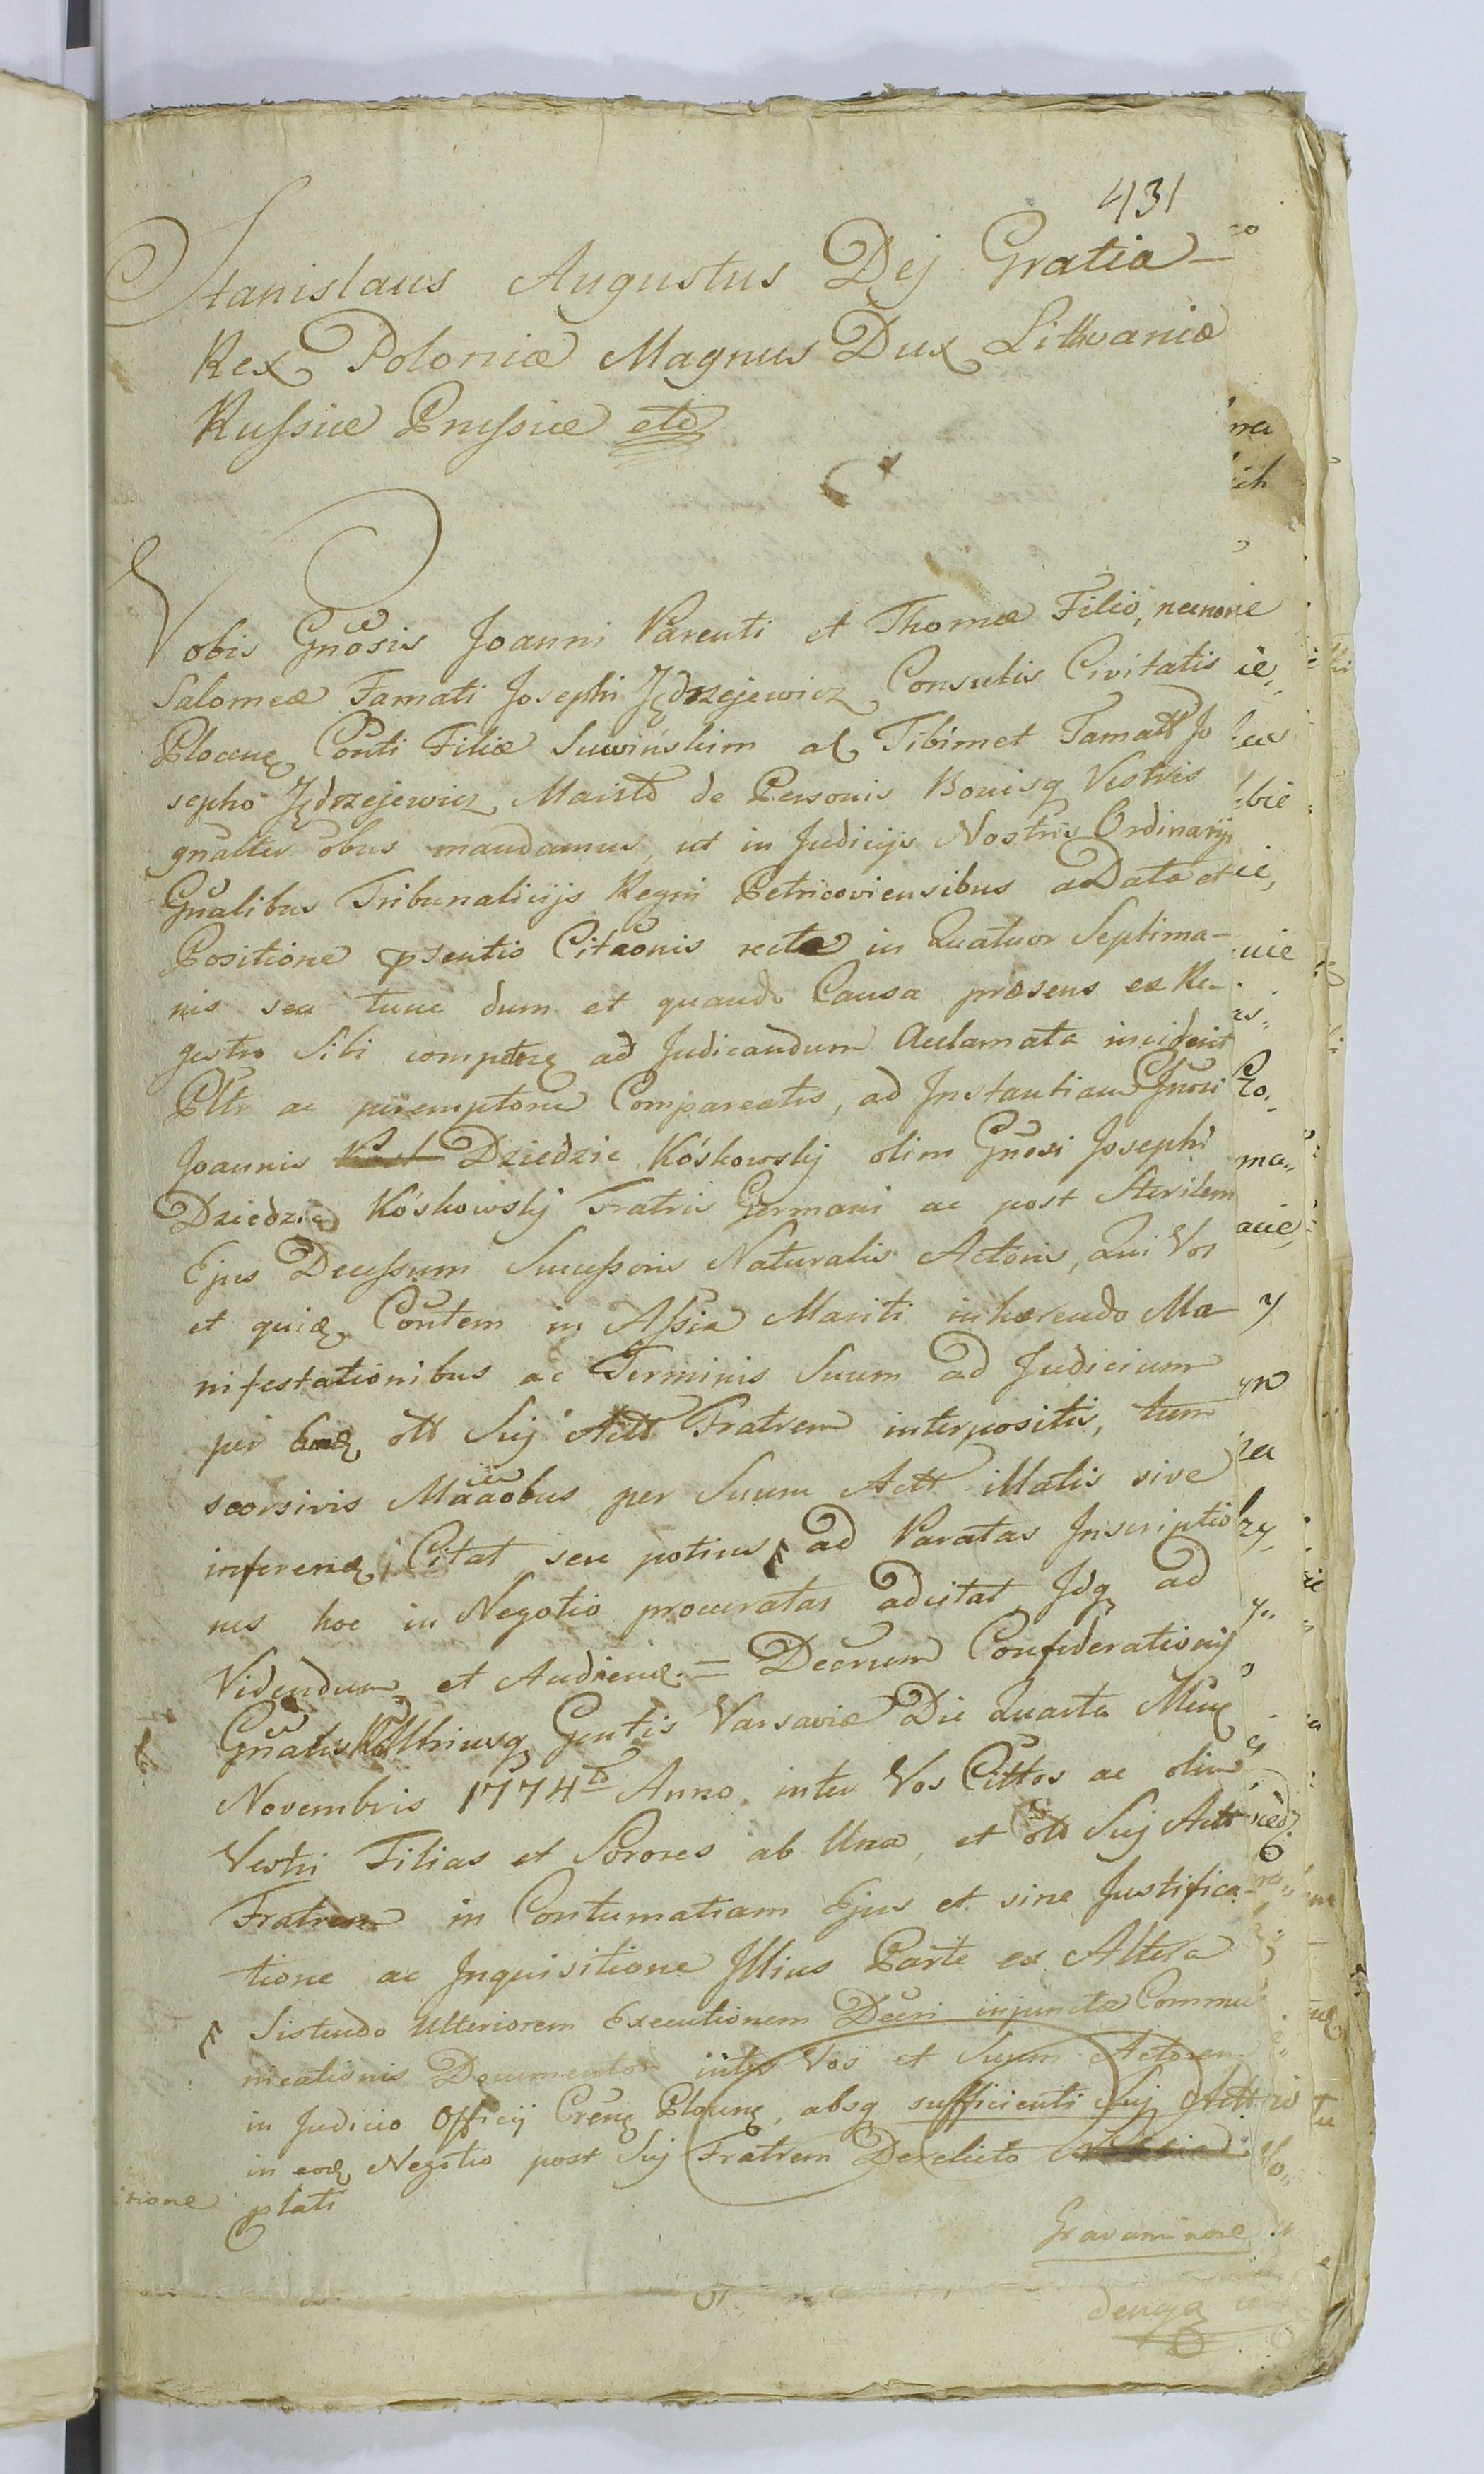 431
Stanislaus Augustus Dej Gratia
Rex Poloniæ Magnus Dux Lithvaniæ
Russiæ Prussiæ etc
Vobis Gnosis Joanni Parenti et Thomæ Filio, necnon
Salomeæ Famati Josephi Jędrzejewicz Consulis Civitatis
Plocen Conti Filiæ Suwińskim ac Tibimet Famatt Jo
sepho Jędrzejewicz Marito de Personis Bonisq Vestris
gnaliter obus mandamus, ut in Judicijs Nostris Ordinarijs
Gnalibus Tribunalicijs Regni Petricoviensibus a Data et
Positione psentis Citaonis recte in Quatuor Septima-
nis seu tunc dum et quando Causa præsens ex Re-
gestro Sibi compten ad Judicandum Aclamata inciderit
Pltr ac peremptorie Compareatis, ad Instantiam Gnosi
Joannis Dziedzic Kóskowskij olim Gnosi Josephi
Dziedzic Kóskowskij Fratris Germani ac post Sterilem
Ejus Decessum Sucessoris Naturalis Actoris, Qui Vos
et quiæ Contem in Assia Mariti inhærendo Ma-
nifestationibus ac Terminis Suum ad Judicium
per ott Suj Actt Fratrem interpositis, tum
seorsivis Maaobus per Suum Actt illatis sive
inferen Citat seu potius ad Paratas Inscriptio
nes hoc in Negotio procuratas adcitat Idq ad
Videndum et Audien = Decrum Confederationij
Gnalis Utriusq Gentis Varsaviæ Die Quarta Men
Novembris 1774to Anno inter Vos Cittos ac olim
Vestri Filias et Sorores ab Una, et ott Suj Actt
Fratrem in Contumatiam Ejus et sine Justifica-
tione ac Inquisitione Illius Parte ex Altera
Sistendo Ulteriorem Executionem Decri injunctæ Commu
nicationis Documentor inter Vos et Suum Actorem
in Judicio Officij Cren Plocen, absq sufficienti Suj Actt
in eod Negotio post Suj Fratrem Derelicto
plati
Gravaminose